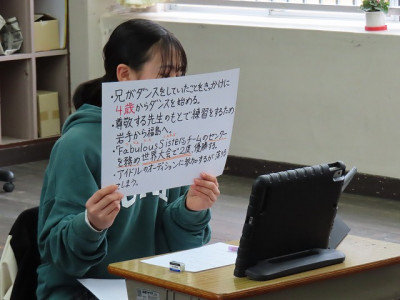 ・兄がダンスをしていたことをきっかけに
4歳からダンスを始める。
・尊敬する先生のもとで練習をするため
岩手から福島へ。
・Fabulous Sistersチームのセンター
を務め世界大会で2度、優勝する。
・アイドルのオーディションに参加するが落ちて
しまう。